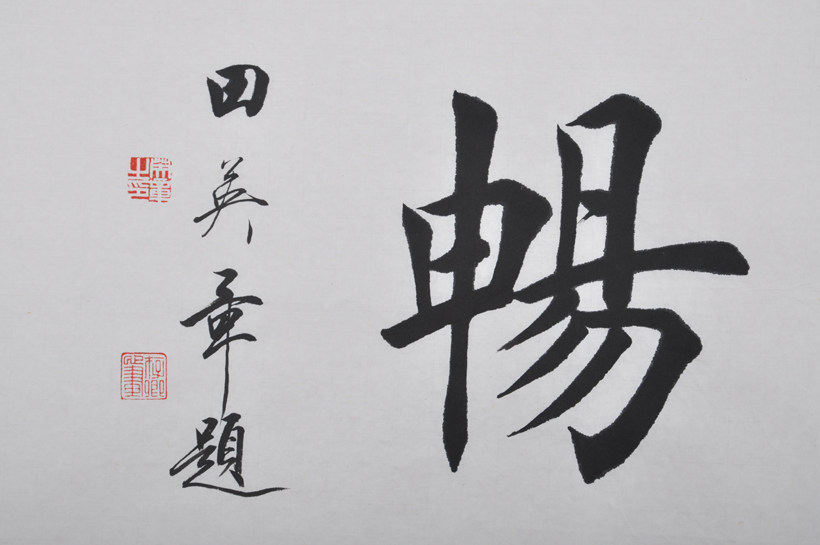 暢
田英章題